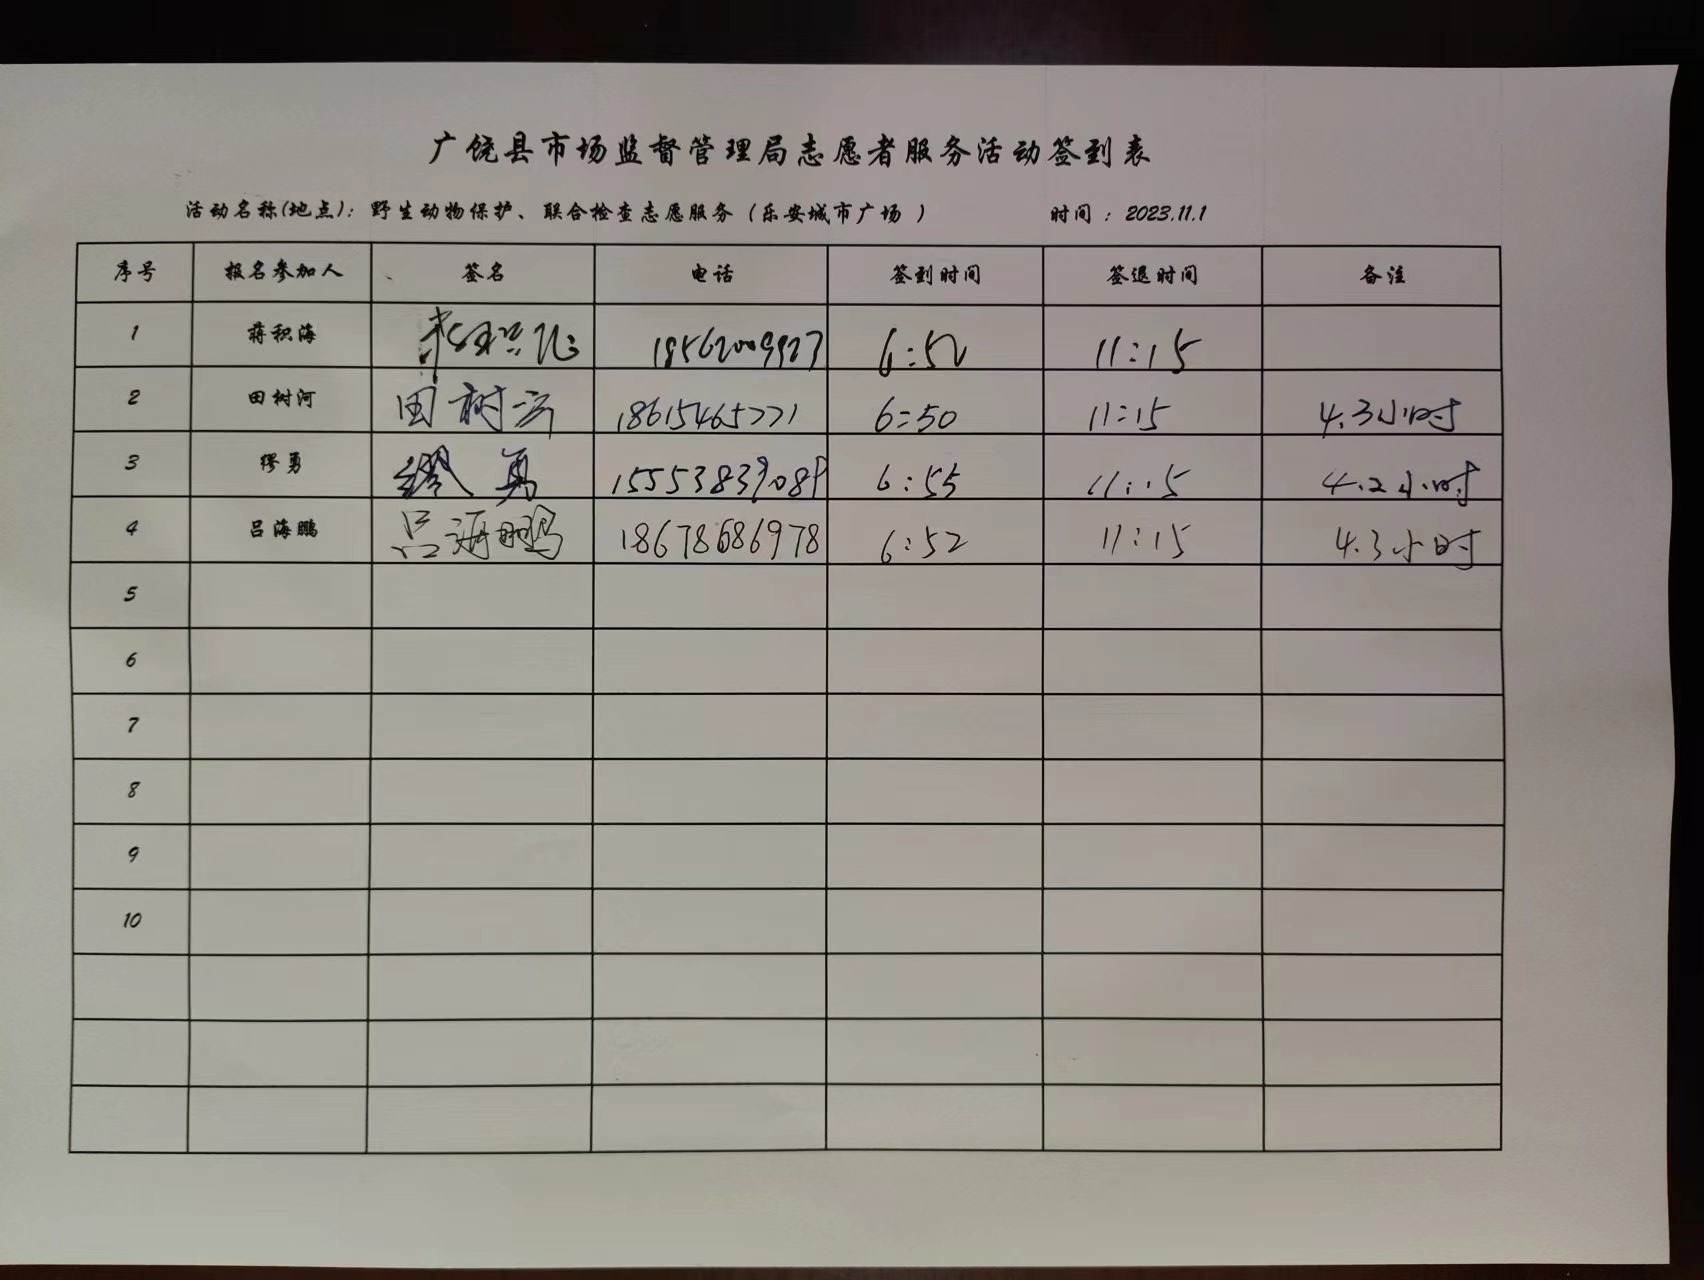 广饶县市场监督管理局志愿者服务活动签到表
活动名称(地点)：野生动物保护、联合检查志愿服务（乐安城市广场 ） 时间 ：2023.11.1
序号 报名参加人 签名 电话 签到时间 签退时间 备注
1 蒋积海 18562009927 6:50 11:15
2 田树河 田树河 18615465771 6:50 11:15 4.3小时
3 缪勇 缪勇 15553839089 6:55 11:15 4.2小时
4 吕海鹏 吕海鹏 18678686978 6:52 11:15 4.3小时
5
6
7
8
9
10